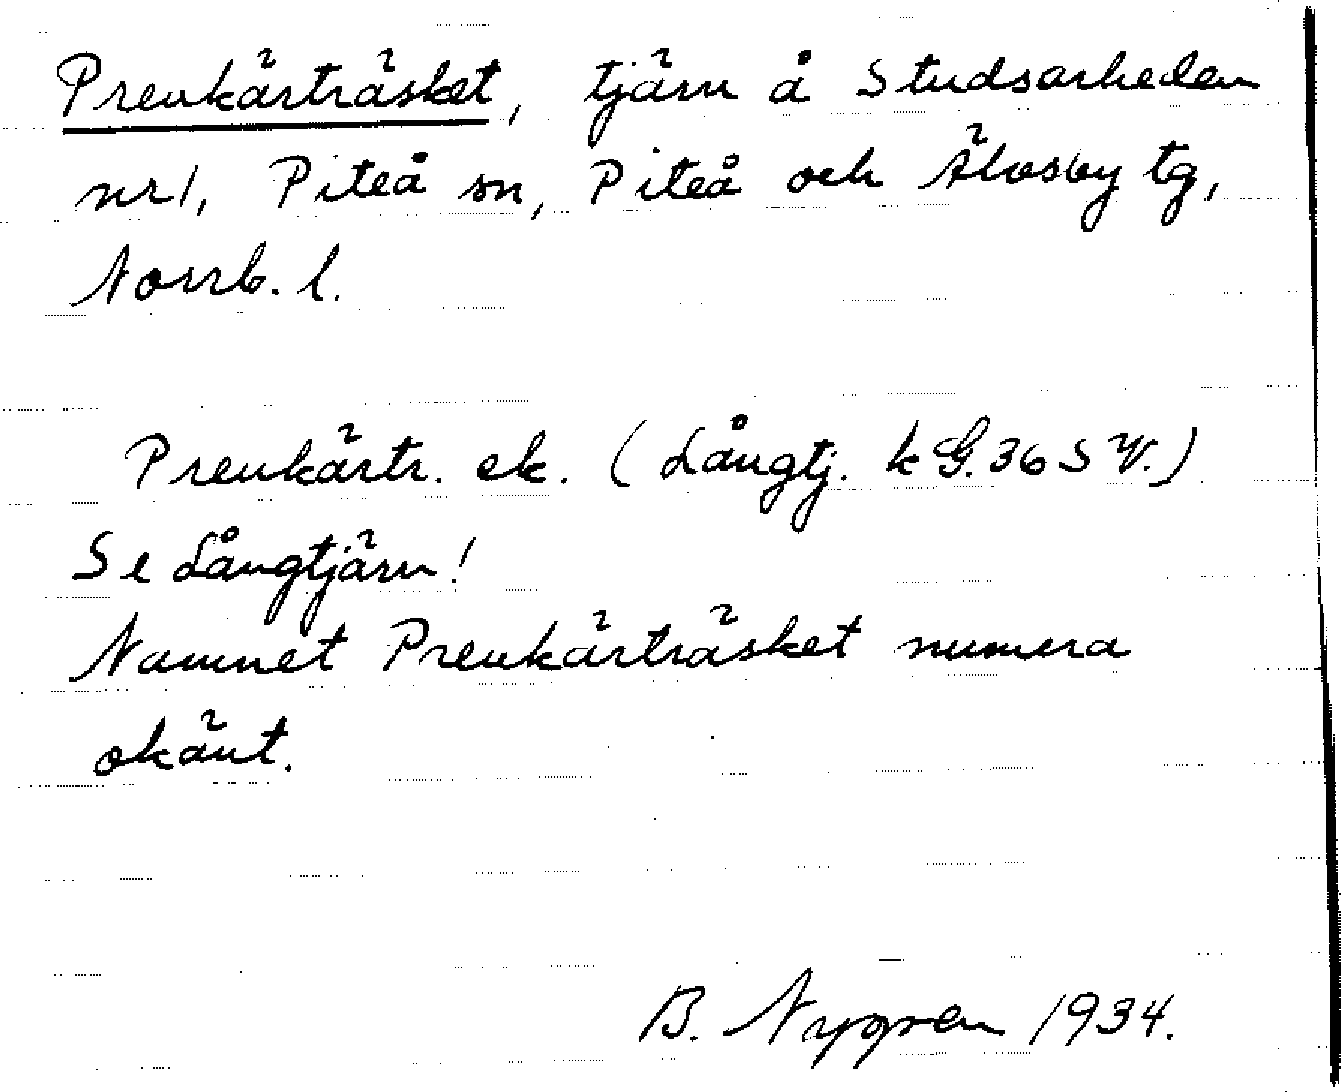 Prenkärträsket, tjärn å Studsarheden
nr 1, Piteå sn, Piteå och Älvsby tg,
Norrb. l.
Prenkärtr. ek. (Långtj. kG. 36 SV.)
Se Långtjärn!
Namnet Prenkärträsket numera
okänt.
B. Nygren 1934.